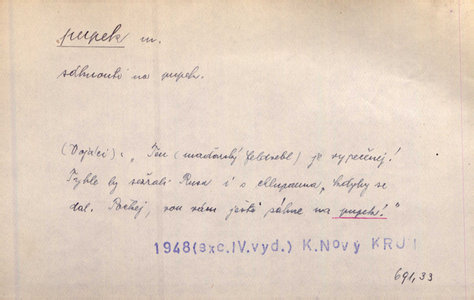 pupek m.
sáhnouti na pupek.
(Vojáci): „Ten (maďarský feldvébl) je vypečenej!
Tyhle by sežrali Rusa i s chlupama, kdyby se
dal. Počkej, von vám ještě sáhne na pupek!"
1948 (sxc.IV.vyd.) K.Nový KRJ I
691,33